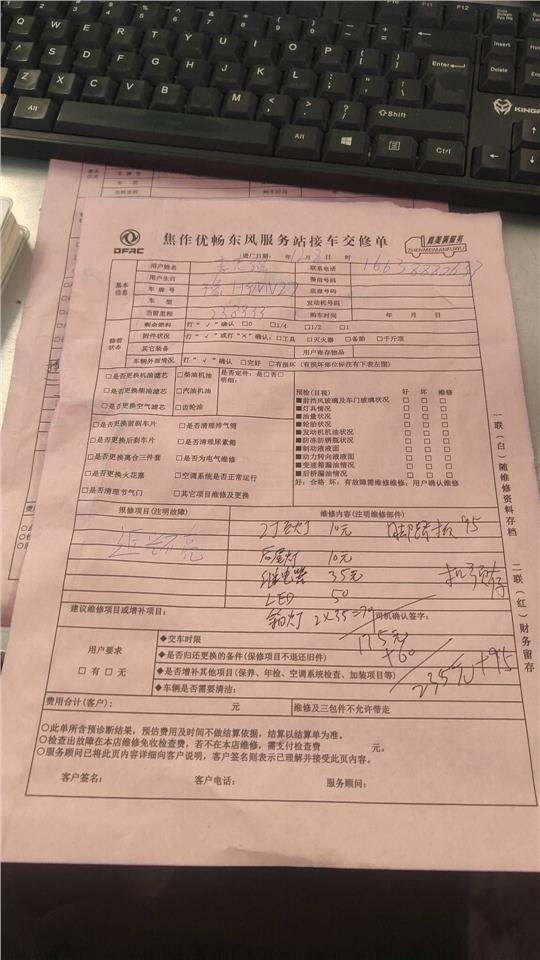 焦作优畅东风服务站接车交修单
DFAC
真美满服务
ZHENMEIMANFUWU
进厂日期: 年 月 日 时
基本信息
用户姓名 联系电话
用户生日 微信号码
车牌号 底盘号码
车型 发动机号码
当前里程 238933 购车时间 年 月 日
修前状态
剩余燃料 打“√”确认 □0 □1/4 □1/2 □1
附件状况 打“√”或打“×”确认: □工具 □灭火器 □备胎 □千斤顶
其它装备 用户寄存物品
车辆外部情况 打“√”确认 □完好 □有损坏(有损坏部位标注有下表左图)
□是否更换机油滤芯 □柴油机油 是否定件: 是□否□
□是否更换柴油滤芯 □汽油机油 明细:
□是否更换空气滤芯 □齿轮油
□是否更换前刹车片 □是否清理排气筒
□是否更换后刹车片 □是否清理尿素箱
□是否更换离合三件套 □是否为电气维修
□是否更换火花塞 □空调系统是否正常运行
□是否清理节气门 □其它项目维修及更换
预检(目视) 好 坏 维修
■前挡风玻璃及车门玻璃状况 □ □ □
■灯具情况 □ □ □
■油量状况 □ □ □
■轮胎状况 □ □ □
■发动机机油状况 □ □ □
■防冻防锈瓶状况 □ □ □
■制动液液面 □ □ □
■动力转向液液面 □ □ □
■变速箱漏油情况 □ □ □
■后桥漏油情况 □ □ □
好:合格 坏:有故障需维修维修: 用户确认维修
报修项目(注明故障) 维修内容(注明维修部件)
10元 95
后尾灯 10元
继电器 35元
LED 50
箱灯 2×35=70
建议维修项目或增补项目: 司机确认签字:
175元
+60
235元+95
用户要求
□有 □无
◆交车时限
◆是否归还更换的备件(保修项目不退还旧件)
◆是否增补其他项目(保养、年检、空调系统检查、加装项目等)
◆车辆是否需要清洁:
费用合计(客户): 元 维修及三包件不允许带走
○此单所含预诊断结果,预估费用及时间不做结算依据,结算以结算单为准。
○检查出故障在本店维修免收检查费,若不在本店维修,需支付检查费 元。
○服务顾问已将此页内容详细向客户说明,客户签名则表示已理解并接受此页内容。
客户签名: 客户电话: 服务顾问:
一联(白)随维修资料存档
二联(红)财务留存